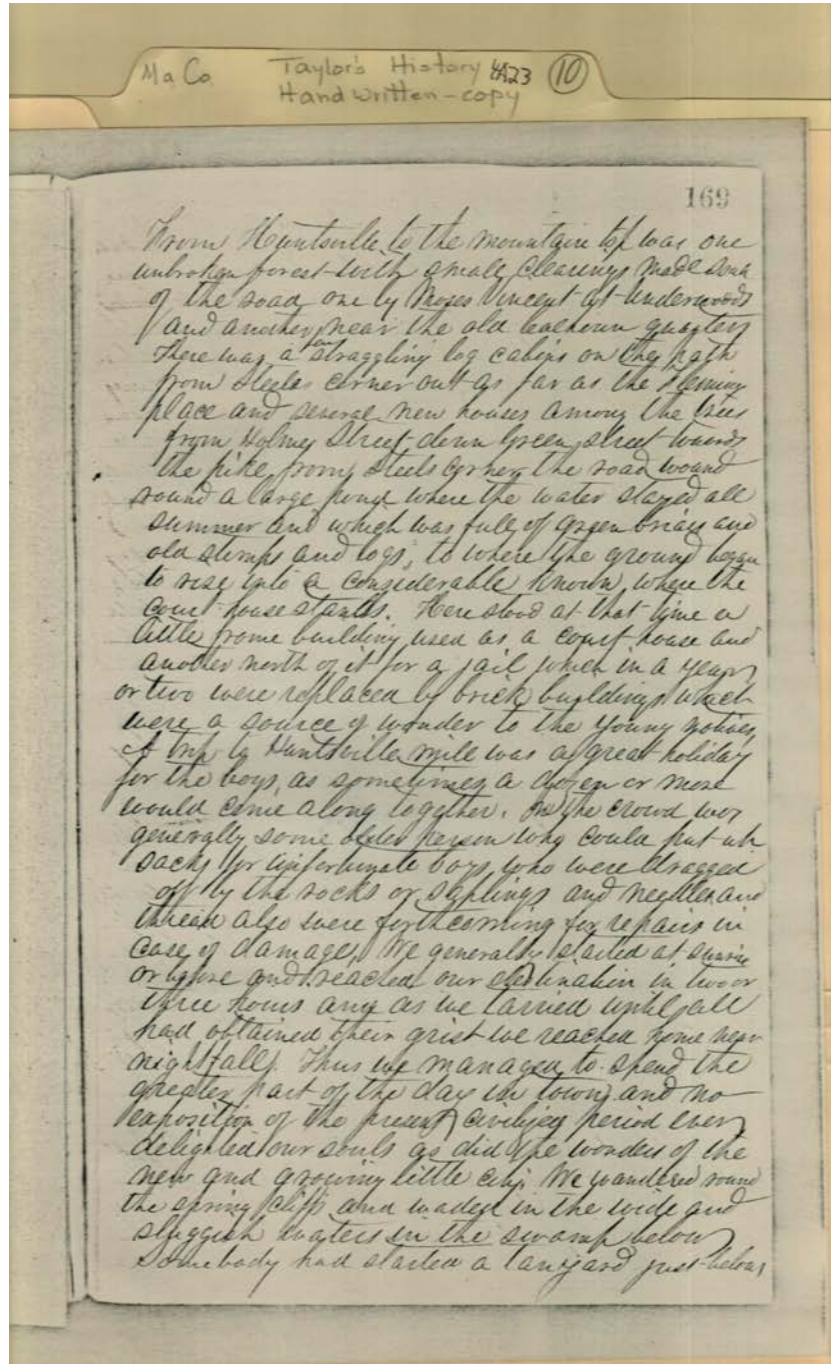 Ma Co Taylor's History 4A23 10
Handwritten-copy
169
From Huntsville to the mountain top was one
unbroken forest with small clearings made south
of the road one by Moses Vincent at Underwoods
and another near the old Calhoun quarters
There was a straggling log cabins on the path
from Steeles corner out as far as the Fleming
place and several new houses among the trees
from Holmes Street down Green street towards
the pike, from Steels corner the road wound
round a large pond where the water stayed all
summer and which was full of green briars and
old stumps and logs, to where the ground began
to rise into a considerable known, where the
court house stands. Here stood at that time a
little frame building used as a court house and
another north of it for a jail which in a year
or two were replaced by brick buildings which
were a source of wonder to the young natives,
A trip to Huntsville mill was a great holiday
for the boys, as sometimes a dozen or more
would come along together. In the crowd was
generally some older person who could put up
sacks for unfortunate boys, who were dragged
off by the rocks or saplings and needles and
thread also were forthcoming for repairs in
case of damage, We generally started at sunrise
or before and reached our destination in two or
three hours and as we tarried until all
had obtained their grist we reached home near
nightfall. Thus we managed to spend the
greater part of the day in town, and no
exposition of the present civilized period ever
delighted our souls as did the wonders of the
new and growing little city. We wandered round
the spring cliffs and waded in the wide and
sluggish waters in the swamp below
Somebody had started a tanyard just below,